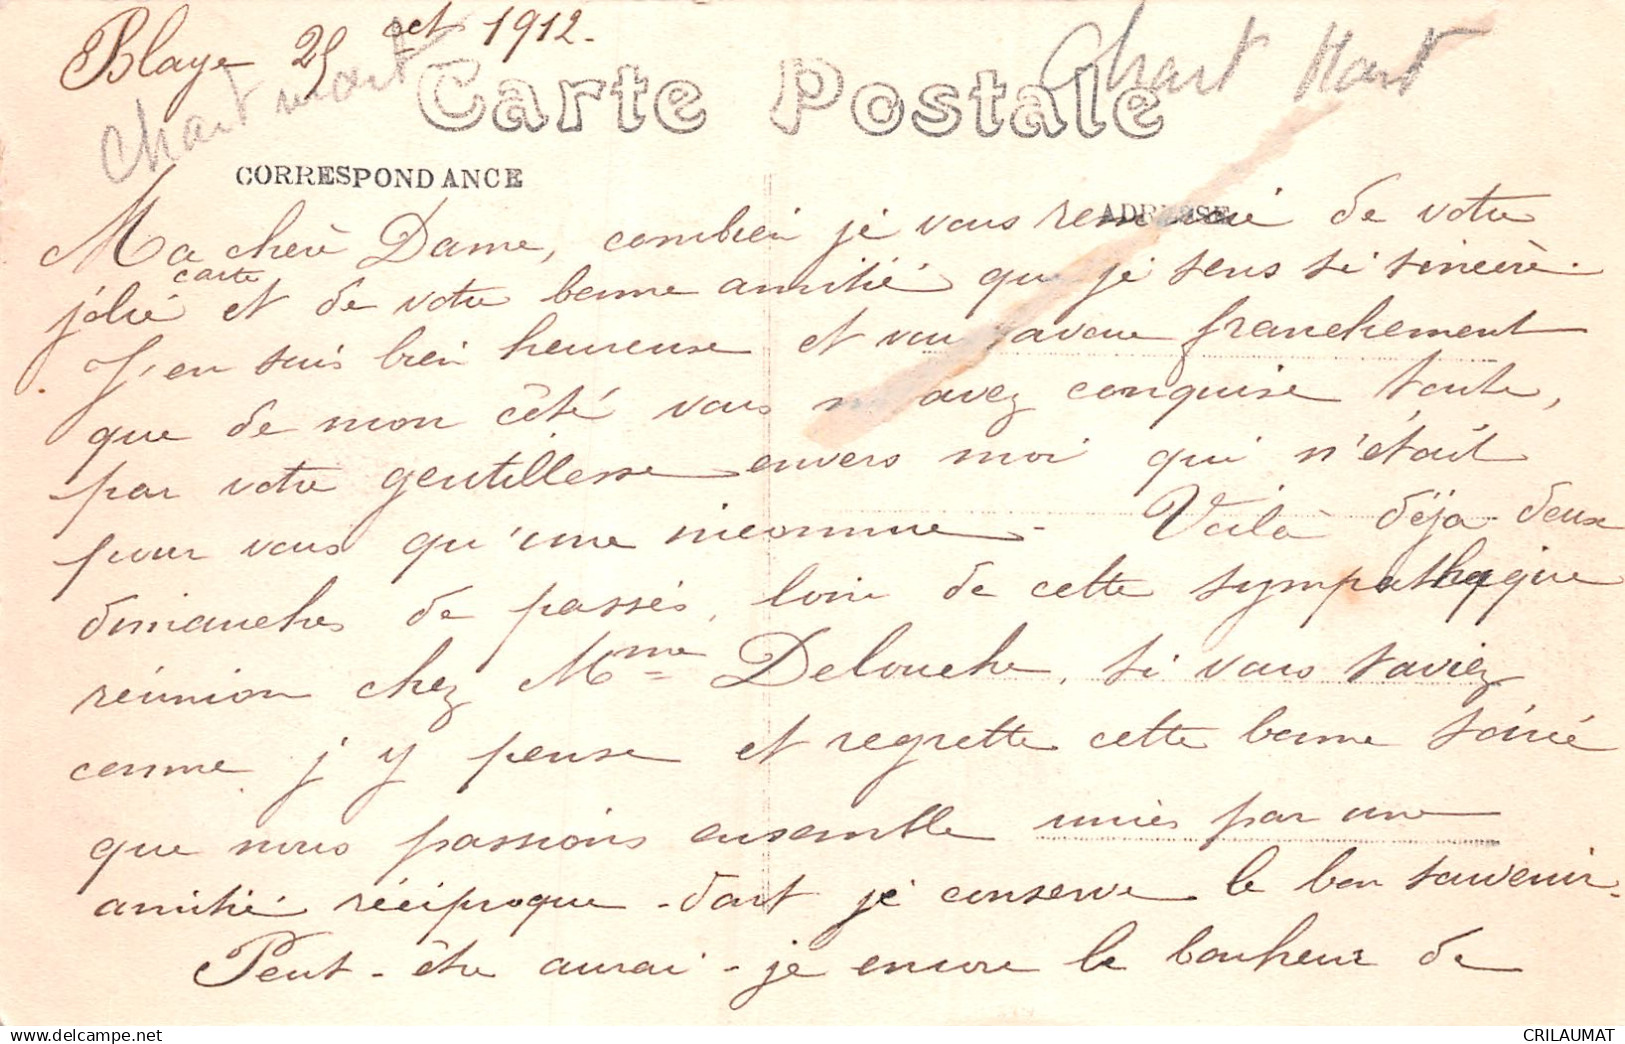 Blaye 25 oct 1912.
Chart mart
Chart Mart
Carte Postale
CORRESPONDANCE
ADRESSE
Ma chère Dame, combien je vous remercie de votre
jolie carte et de votre bonne amitié que je sens si sincère.
J'en suis bien heureuse et vous avoue franchement
que de mon côté vous m'avez conquise toute,
par votre gentillesse envers moi qui n'était
pour vous qu'une inconnue - Voilà déjà deux
dimanches de passés, loin de cette sympathique
réunion chez Mme Delouche, si vous saviez
comme j'y pense et regrette cette bonne soirée
que nous passions ensemble unies par une
amitié réciproque - dont je conserve le bon souvenir.
Peut-être aurai-je encore le bonheur de
CRILAUMAT
www.delcampe.net